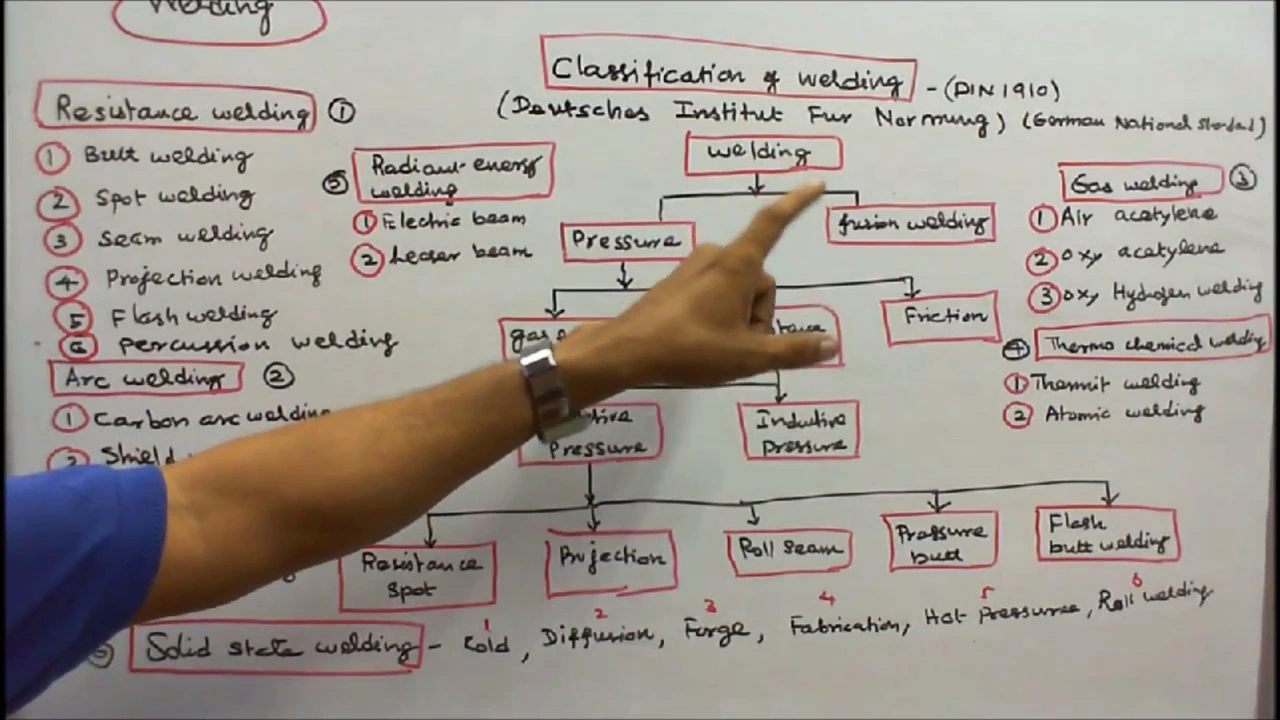 Welding
Classification of welding - (DIN 1910)
(Deutsches Institut Fur Normung) (German National Standard)
Resistance welding ①
① Butt welding
② Spot welding
③ Seam welding
④ Projection welding
⑤ Flash welding
⑥ Percussion welding
Arc welding ②
① Carbon arc welding
② Shield
⑤ Radiant energy
welding
① Electric beam
② Leaser beam
welding
Pressure
fusion welding
gas
Friction
Pressure
Inductive
pressure
Resistance
spot
Projection
Roll seam
Pressure
butt
Flash
butt welding
Gas welding ③
① Air acetylene
② Oxy acetylene
③ Oxy Hydrogen welding
④ Thermo chemical welding
① Thermit welding
② Atomic welding
1 2 3 4 5 6
Solid state welding - Cold, Diffusion, Forge, Fabrication, Hot Pressure, Roll welding